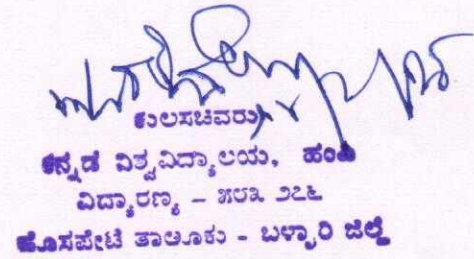 ಕುಲಸಚಿವರು
ಕನ್ನಡ ವಿಶ್ವವಿದ್ಯಾಲಯ, ಹಂಪಿ
ವಿದ್ಯಾರಣ್ಯ – ೫೮೩ ೨೭೬
ಹೊಸಪೇಟೆ ತಾಲೂಕು - ಬಳ್ಳಾರಿ ಜಿಲ್ಲೆ